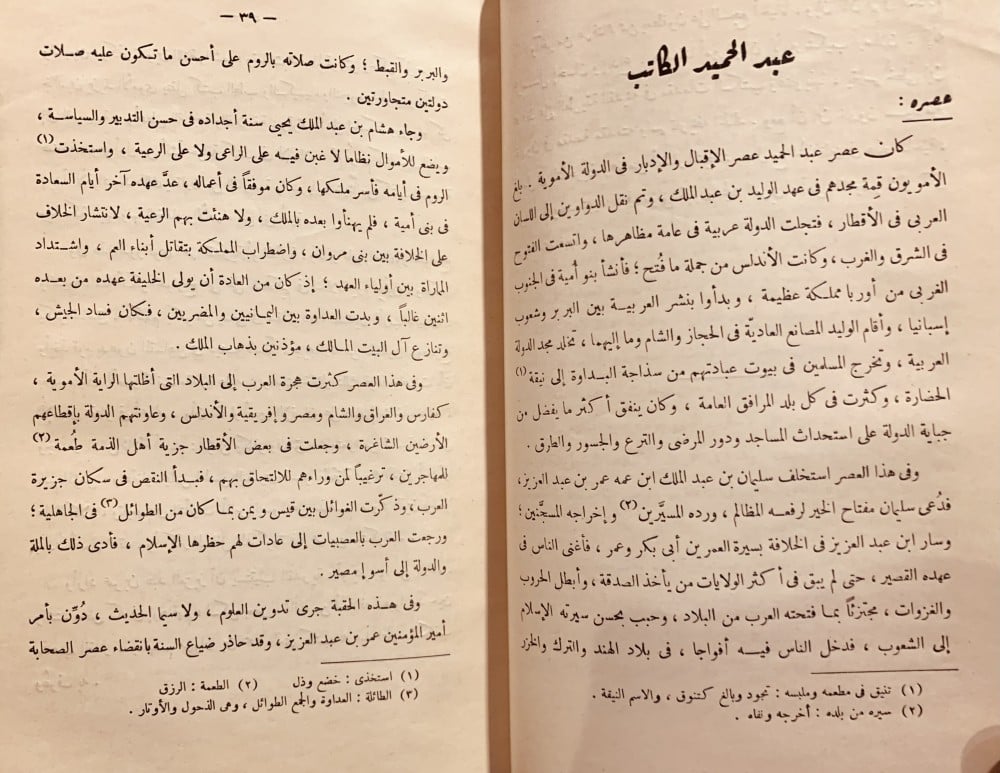 عبد الحميد الكاتب
عصره :
كان عصر عبد الحميد عصر الإقبال والإدبار فى الدولة الأموية . بلغ
الأمويون قمة مجدهم فى عهد الوليد بن عبد الملك ، وتم نقل الدواوين إلى اللسان
العربى فى الأقطار ، فتجلت الدولة عربية فى عامة مظاهرها ، واتسعت الفتوح
فى الشرق والغرب ، وكانت الأندلس من جملة ما فُتح ؛ فأنشأ بنو أمية فى الجنوب
الغربى من أوربا مملكة عظيمة ، وبدأوا بنشر العربية بين البربر وشعوب
إسبانيا ، وأقام الوليد المصانع العاديّة فى الحجاز والشام وما إليهما ، تخلد مجد الدولة
العربية ، وتخرج المسلمين فى بيوت عبادتهم من سذاجة البداوة إلى نيقة (١)
الحضارة ، وكثرت فى كل بلد المرافق العامة ، وكان ينفق أكثر ما يفضل من
جباية الدولة على استحداث المساجد ودور المرضى والترع والجسور والطرق .
وفى هذا العصر استخلف سليمان بن عبد الملك ابن عمه عمر بن عبد العزيز ،
فدُعى سليمان مفتاح الخير لرفعه المظالم ، ورده المسيَّرين (٢) وإخراجه المسجَّنين ؛
وسار ابن عبد العزيز فى الخلافة بسيرة العمرين أبى بكر وعمر ، فأغنى الناس فى
عهده القصير ، حتى لم يبق فى أكثر الولايات من يأخذ الصدقة ، وأبطل الحروب
والغزوات ، مجتزئاً بما فتحته العرب من البلاد ، وحبب بحسن سيرته الإسلام
إلى الشعوب ، فدخل الناس فيه أفواجا ، فى بلاد الهند والترك والخزر
(١) تنيق فى مطعمه وملبسه : تجود وبالغ كتنوق ، والاسم النيقة .
(٢) سيره من بلده : أخرجه ونفاه .
— ٣٩ —
والبربر والقبط ؛ وكانت صلاته بالروم على أحسن ما تكون عليه صلات
دولتين متجاورتين .
وجاء هشام بن عبد الملك يحيى سنة أجداده فى حسن التدبير والسياسة ،
ويضع للأموال نظاما لا غبن فيه على الراعى ولا على الرعية ، واستخذت (١)
الروم فى أيامه فأسر ملكها ، وكان موفقاً فى أعماله ، عدَّ عهده آخر أيام السعادة
فى بنى أمية ، فلم يهنأوا بعده بالملك ، ولا هنئت بهم الرعية ، لانتشار الخلاف
على الخلافة بين بنى مروان ، واضطراب المملكة بتقاتل أبناء العم ، واشتداد
الماراة بين أولياء العهد ؛ إذ كان من العادة أن يولى الخليفة عهده من بعده
اثنين غالباً ، وبدت العداوة بين اليمانيين والمضريين ، فكان فساد الجيش ،
وتنازع آل البيت المالك ، مؤذنين بذهاب الملك .
وفى هذا العصر كثرت هجرة العرب إلى البلاد التى أظلتها الراية الأموية ،
كفارس والعراق والشام ومصر وإفريقية والأندلس ، وعاونتهم الدولة بإقطاعهم
الأرضين الشاغرة ، وجعلت فى بعض الأقطار جزية أهل الذمة طُعمة (٢)
للمهاجرين ، ترغيباً لمن وراءهم للالتحاق بهم ، فبدأ النقص فى سكان جزيرة
العرب ، وذكّرت الغوائل بين قيس ويمن بما كان من الطوائل (٣) فى الجاهلية ؛
ورجعت العرب بالعصبيات إلى عادات لهم حظرها الإسلام ، فأدى ذلك بالملة
والدولة إلى أسوإ مصير .
وفى هذه الحقبة جرى تدوين العلوم ، ولا سيما الحديث ، دُوِّن بأمر
أمير المؤمنين عمر بن عبد العزيز ، وقد حاذر ضياع السنة بانقضاء عصر الصحابة
(١) استخذى : خضع وذل (٢) الطعمة : الرزق
(٣) الطائلة : العداوة والجمع الطوائل ، وهى الذحول والأوتار .